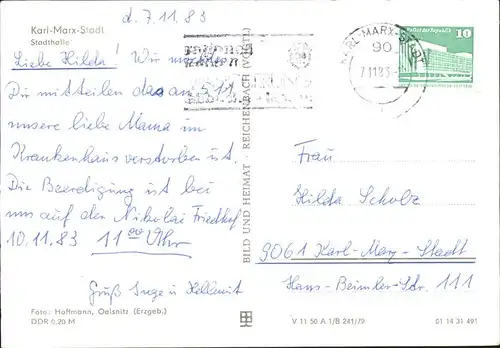 d. 7.11.83
Karl-Marx-Stadt
Stadthalle
Liebe Hilda! Wir müssen
Dir mitteilen das am 5.11.
unsere liebe Mama im
Krankenhaus verstorben ist.
Die Beerdigung ist bei
uns auf den Nikolai Friedhof
10.11.83 11 00 Uhr
Gruß Inge u Hellmut
Foto: Hoffmann, Oelsnitz (Erzgeb.)
DDR 0,20 M
BILD UND HEIMAT · REICHENBACH (VOGTL)
KARL-MARX-STADT
90
7.11.83
Palast der Republik
10
Frau
Hilda Scholz
9061 Karl-Marx-Stadt
Hans-Beimler-Str. 111
V 11 50 A 1/B 241/79
01 14 31 491